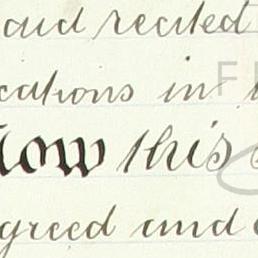 and recited
cations in
Now this
greed and